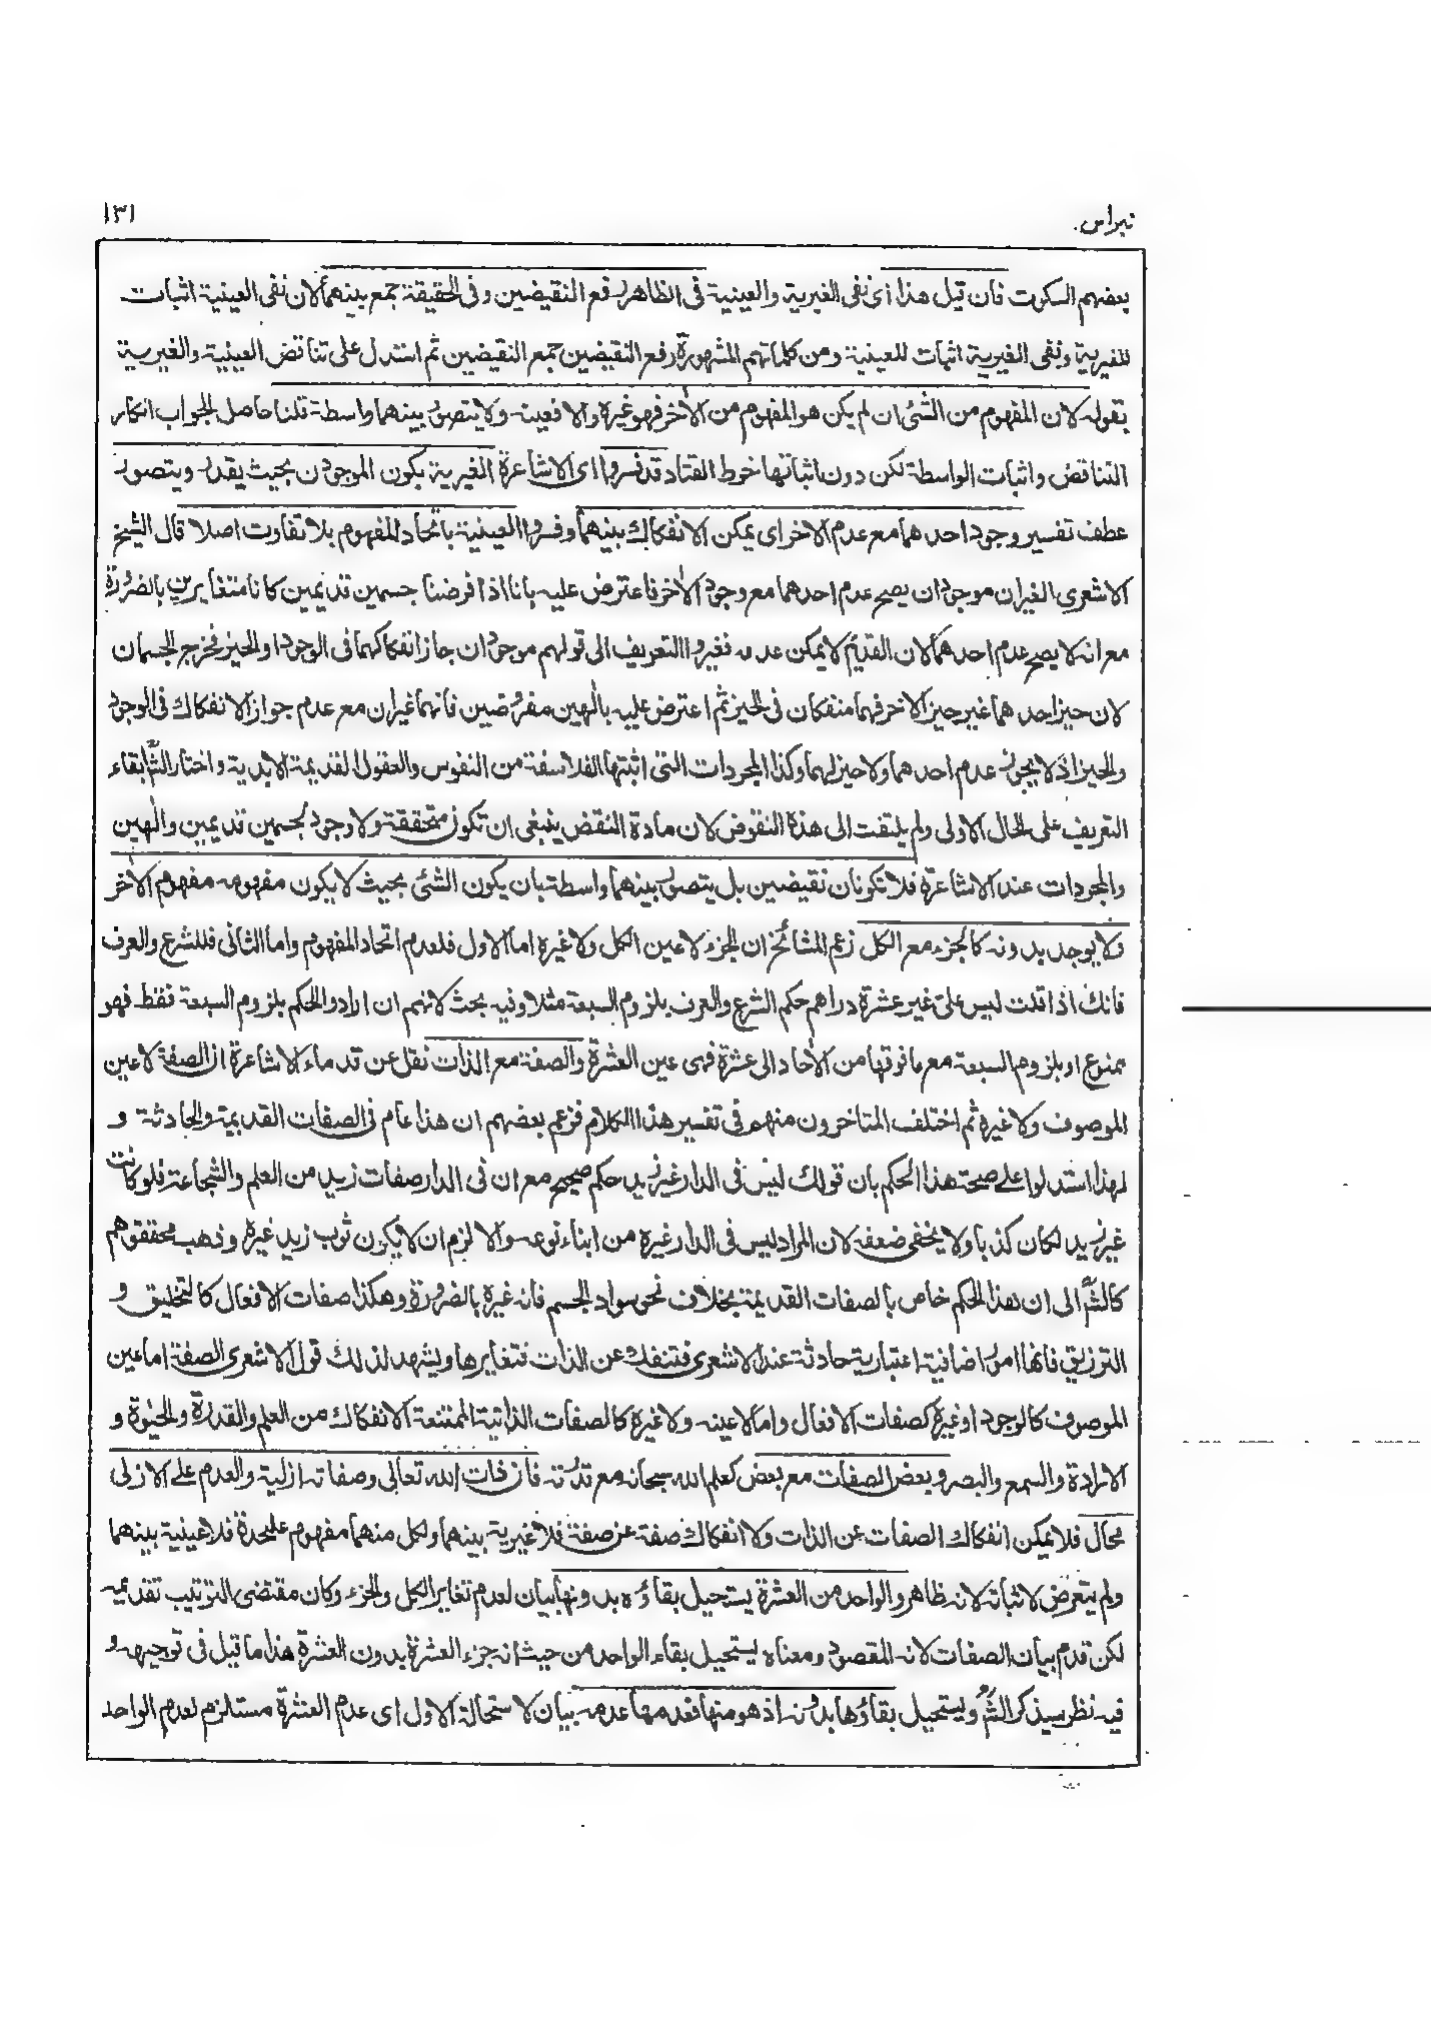 نبراس
١٣١
بعضهم السكوت فان قيل هذا اى نفى الغيرية والعينية فى الظاهر رفع النقيضين وفى الحقيقة جمع بينهما لان نفى العينية اثبات
للغيرية ونفى الغيرية اثبات للعينية ومن كلماتهم المشهورة رفع النقيضين جمع النقيضين ثم استدل على تناقض العينية والغيرية
بقوله لان المفهوم من الشئ ان لم يكن هو المفهوم من الأخر فهو غيره والا فعينه ولا يتصور بينهما واسطة قلنا حاصل الجواب انكار
التناقض واثبات الواسطة لكن دون اثباتها خرط القتاد قد فسروا اى الاشاعرة الغيرية بكون الموجودين بحيث يقدر ويتصور
عطف تفسير وجود احدهما مع عدم الاخر اى يمكن الانفكاك بينهما وفسروا العينية باتحاد المفهوم بلا تفاوت اصلا قال الشيخ
الاشعرى الغيران موجودان يصح عدم احدهما مع وجود الأخر فاعترض عليه بانا اذا فرضنا جسمين قديمين كانا متغايرين بالضرورة
مع انه لا يصح عدم احدهما لان القديم لا يمكن عدمه فغيروا التعريف الى قولهم موجودان جاز انفكاكهما فى الوجود او الحيز فخرج الجسمان
لان حيز احدهما غير حيز الأخر فهما منفكان فى الحيز ثم اعترض عليه بالٰهين مفروضين فانهما غيران مع عدم جواز الانفكاك فى الوجود
والحيز اذ لا يجوز عدم احدهما ولا حيز لهما وكذا المجردات التى اثبتها الفلاسفة من النفوس والعقول القديمة الابدية واختار الشّ ابقاء
التعريف على الحال الاولى ولم يلتفت الى هذه النقوض لان مادة النقض ينبغى ان تكون متحققة ولا وجود لجسمين قديمين والٰهين
والمجردات عند الاشاعرة فلا تكونان نقيضين بل يتصور بينهما واسطة بان يكون الشئ بحيث لا يكون مفهومه مفهوم الأخر
ولا يوجد بدونه كالجزء مع الكل زعم المشائخ ان الجزء لا عين الكل ولا غيره اما الاول فلعدم اتحاد المفهوم واما الثانى فللشرع والعرف
فانك اذا قلت ليس علىّ غير عشرة دراهم حكم الشرع والعرف بلزوم السبعة مثلا وفيه بحث لانهم ان ارادوا الحكم بلزوم السبعة فقط فهو
ممنوع او بلزوم السبعة مع ما فوقها من الأحاد الى عشرة فهى عين العشرة والصفة مع الذات نقل عن قدماء الاشاعرة ان الصفة لا عين
الموصوف ولا غيره ثم اختلف المتاخرون منهم فى تفسير هذا الكلام فزعم بعضهم ان هذا عام فى الصفات القديمة والحادثة و
لهذا استدلوا على صحة هذا الحكم بان قولك ليس فى الدار غير زيد حكم صحيح مع ان فى الدار صفات زيد من العلم والشجاعة فلو كانت
غير زيد لكان كذبا ولا يخفى ضعفه لان المراد ليس فى الدار غيره من ابناء نوعه والا لزم ان لا يكون ثوب زيد غيره وذهب محققوهم
كالشّ الى ان هذا الحكم خاص بالصفات القديمة بخلاف نحو سواد الجسم فانه غيره بالضرورة وهكذا صفات الافعال كالتخليق و
الترزيق فانها امور اضافية اعتبارية حادثة عند الاشعرى فتنفك عن الذات فتغايرها ويشهد لذلك قول الاشعرى الصفة اما عين
الموصوف كالوجود او غيره كصفات الافعال واما لا عينه ولا غيره كالصفات الذاتية الممتنعة الانفكاك من العلم والقدرة والحيوة و
الارادة والسمع والبصر وبعض الصفات مع بعض كعلم الله سبحانه مع قدرته فان ذات الله تعالى وصفاته ازلية والعدم على الازلى
محال فلا يمكن انفكاك الصفات عن الذات ولا انفكاك صفة عن صفة فلا غيرية بينهما ولكل منهما مفهوم عليحدة فلا عينية بينهما
ولم يتعرض لاثباته لانه ظاهر والواحد من العشرة يستحيل بقاؤه بدونها بيان لعدم تغاير الكل والجزء وكان مقتضى الترتيب تقديمه
لكن قدم بيان الصفات لانه المقصود ومعناه يستحيل بقاء الواحد من حيث انه جزء العشرة بدون العشرة هذا ما قيل فى توجيهه و
فيه نظر سيذكر الشّ ويستحيل بقاؤها بدونه اذ هو منها فعدمها عدمه بيان لاستحالة الاول اى عدم العشرة مستلزم لعدم الواحد